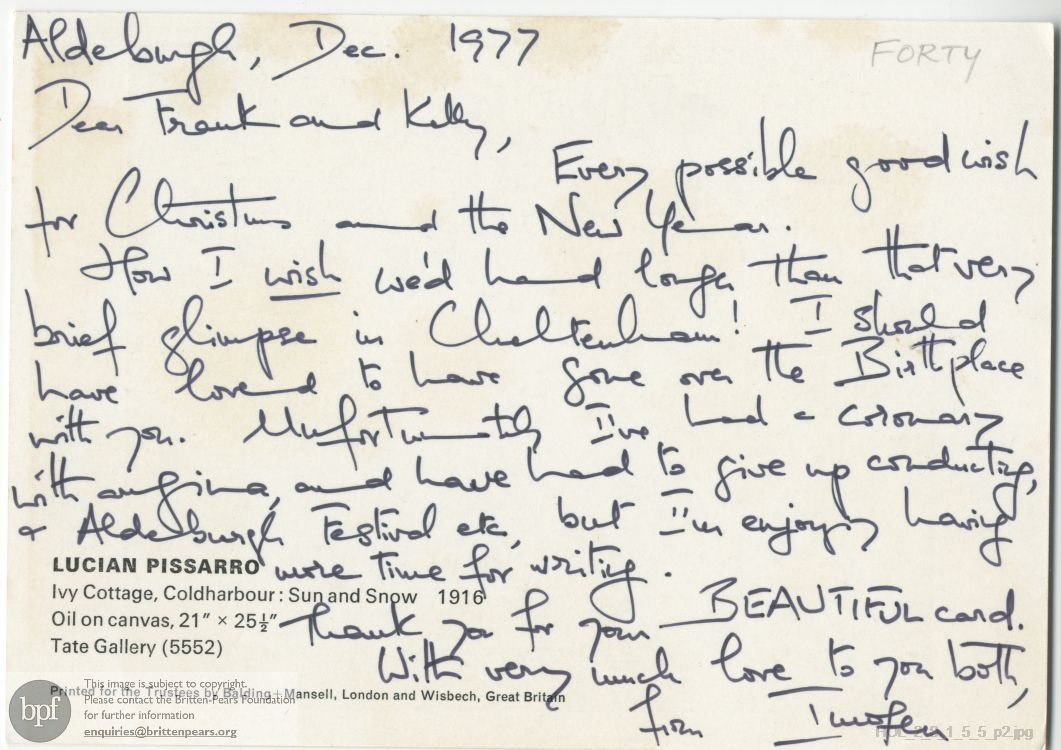 Aldeburgh, Dec. 1977
FORTY
Dear Frank and Kelly,
Every possible good wish
for Christmas and the New Year.
How I wish we'd had longer than that very
brief glimpse in Cheltenham! I should
have loved to have gone over the Birthplace
with you. Unfortunately I've had a coronary
with angina, and have had to give up conducting,
+ Aldeburgh Festival etc, but I'm enjoying having
more time for writing.
LUCIAN PISSARRO
Ivy Cottage, Coldharbour: Sun and Snow 1916
Oil on canvas, 21″ × 25½″
Tate Gallery (5552)
Thank you for your BEAUTIFUL card.
With very much love to you both,
from Imogen
Printed for the Trustees by Balding + Mansell, London and Wisbech, Great Britain
bpf
This image is subject to copyright.
Please contact the Britten-Pears Foundation
for further information
enquiries@brittenpears.org